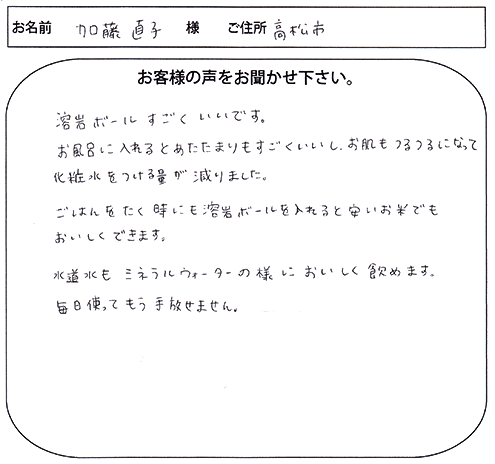 お名前 加藤 直子 様 ご住所 高松市
お客様の声をお聞かせ下さい。
溶岩ボールすごくいいです。
お風呂に入れるとあたたまりもすごくいいし、お肌もつるつるになって
化粧水をつける量が減りました。
ごはんをたく時にも溶岩ボールを入れると安いお米でも
おいしくできます。
水道水もミネラルウォーターの様においしく飲めます。
毎日使ってもう手放せません。